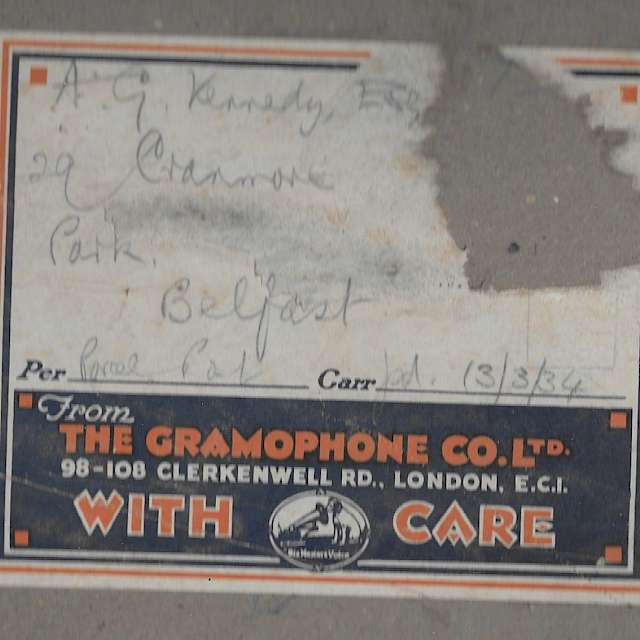 A. G. Kennedy, Esq
29 Cranmore
Park.
Belfast
Per Parcel Post Carr pd. 13/3/34
From
THE GRAMOPHONE CO. LTD.
98-108 CLERKENWELL RD., LONDON, E.C.1.
WITH CARE
His Master's Voice